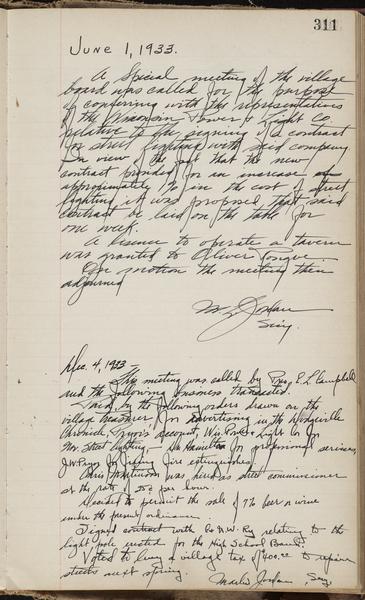 311
June 1, 1933.
A Special meeting of the village
board was called for the purpose
of conferring with the representatives
of the Wisconsin Power & Light Co.
relative to the signing of a contract
for street lighting with said company
In view of the fact that the new
contract provided for an increase
approximately in the cost of street
lighting, it was proposed that said
contract be laid on the table for
one week.
A license to operate a tavern
was granted to Oliver
On motion the meeting then
adjourned
Dec. 4, 1933 -
This meeting was called by Pres. E. L. Campbell
and the following business transacted.
the following orders drawn on the
village treasurer; for advertising in the
Chronicle, account, Wis. Power & Light Co. for
Nov. Street lighting - Dr. Hamilton for professional services,
J.W. for fire extinguishers.
Chris was hired as street commissioner
at the rate of per hour.
Decided to permit the sale of beer or wine
under the present ordinance.
Signed contract with Ry relating to the
light pole erected for the High School Band.
Voted to levy a village tax of $400.00 to repair
streets next spring.